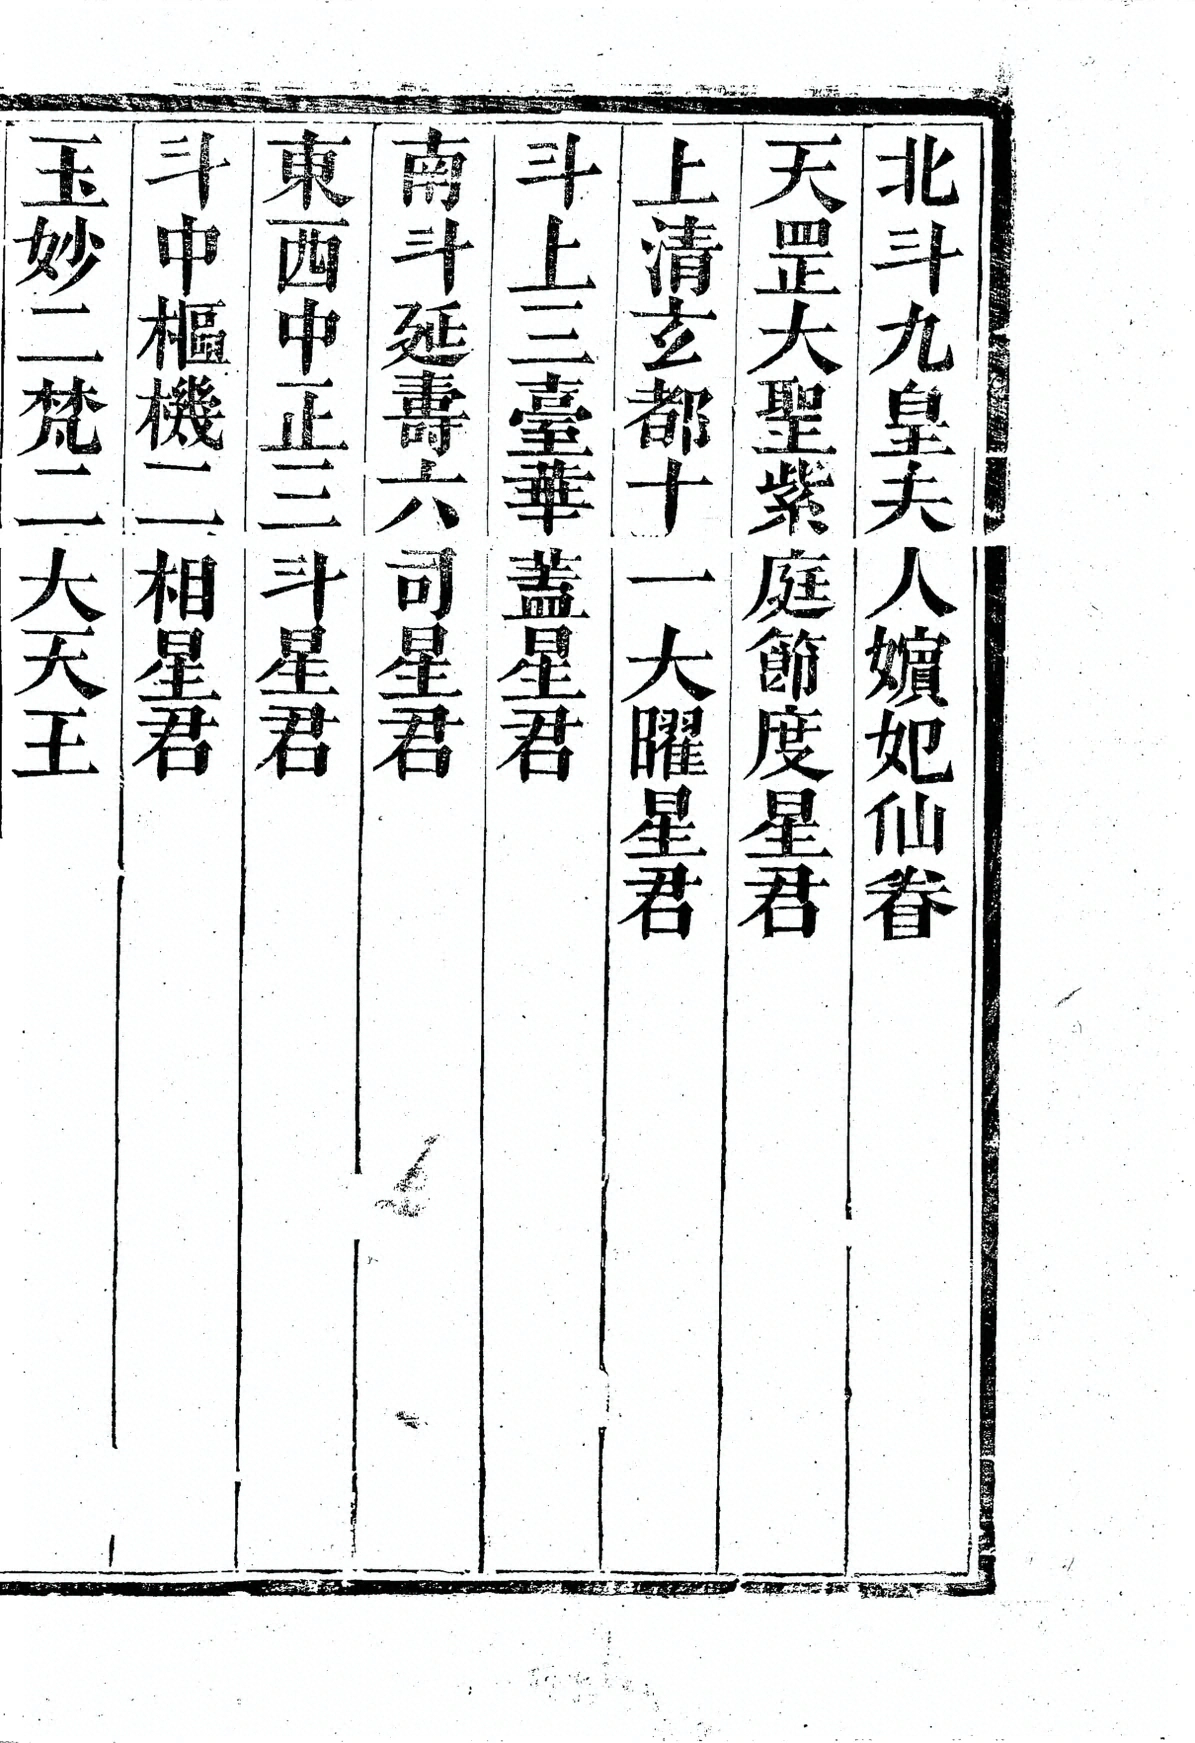 北斗九皇夫人嬪妃仙眷
天罡大聖紫庭節度星君
上清玄都十一大曜星君
斗上三臺華蓋星君
南斗延壽六司星君
東西中正三斗星君
斗中樞機二相星君
玉妙二梵二大天王